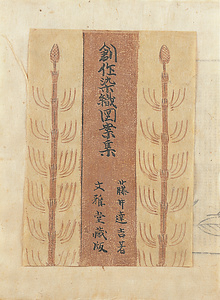 創作染織図案集
藤井達吉著
文雅堂藏版